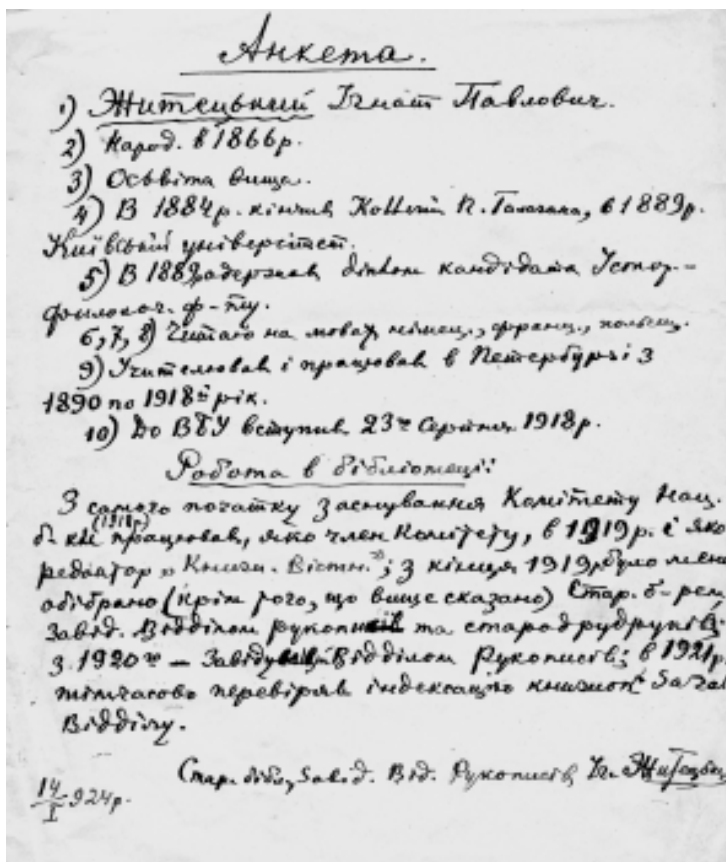 Анкета.
1) Житецький Ігнат Павлович.
2) Народ. в 1866 р.
3) Осьвіта вища.
4) В 1884 р. кінчив Колегію П. Галагана, в 1889 р.
Київський університет.
5) В 1889 одержав діплом кандідата Істор.-
філолог. ф-ту.
6, 7, 8) Читаю на мовах німец., франц., польськ.
9) Учителював і працював в Петербурзі з
1890 по 1918й рік.
10) До ВБУ вступив 23го Серпня 1918 р.
Робота в бібліотеці:
З самого початку заснування Комітету Нац.
б-ки (1918 р.) працював, яко член Комітету, в 1919 р. і яко
редактор „Книжн. Вістн."; з кінця 1919 р. було мене
обібрано (крім того, що вище сказано) Стар. б-рем
Завід. Відділом рукописів та стародрудруків;
з 1920го — Завідую Відділом Рукописів; в 1921 р.
тімчасово перевіряв індексацію книжок Загал
Відділу.
Стар. бібл., Завід. Від. Рукописів, Іг. Житецький
14/I 924 р.